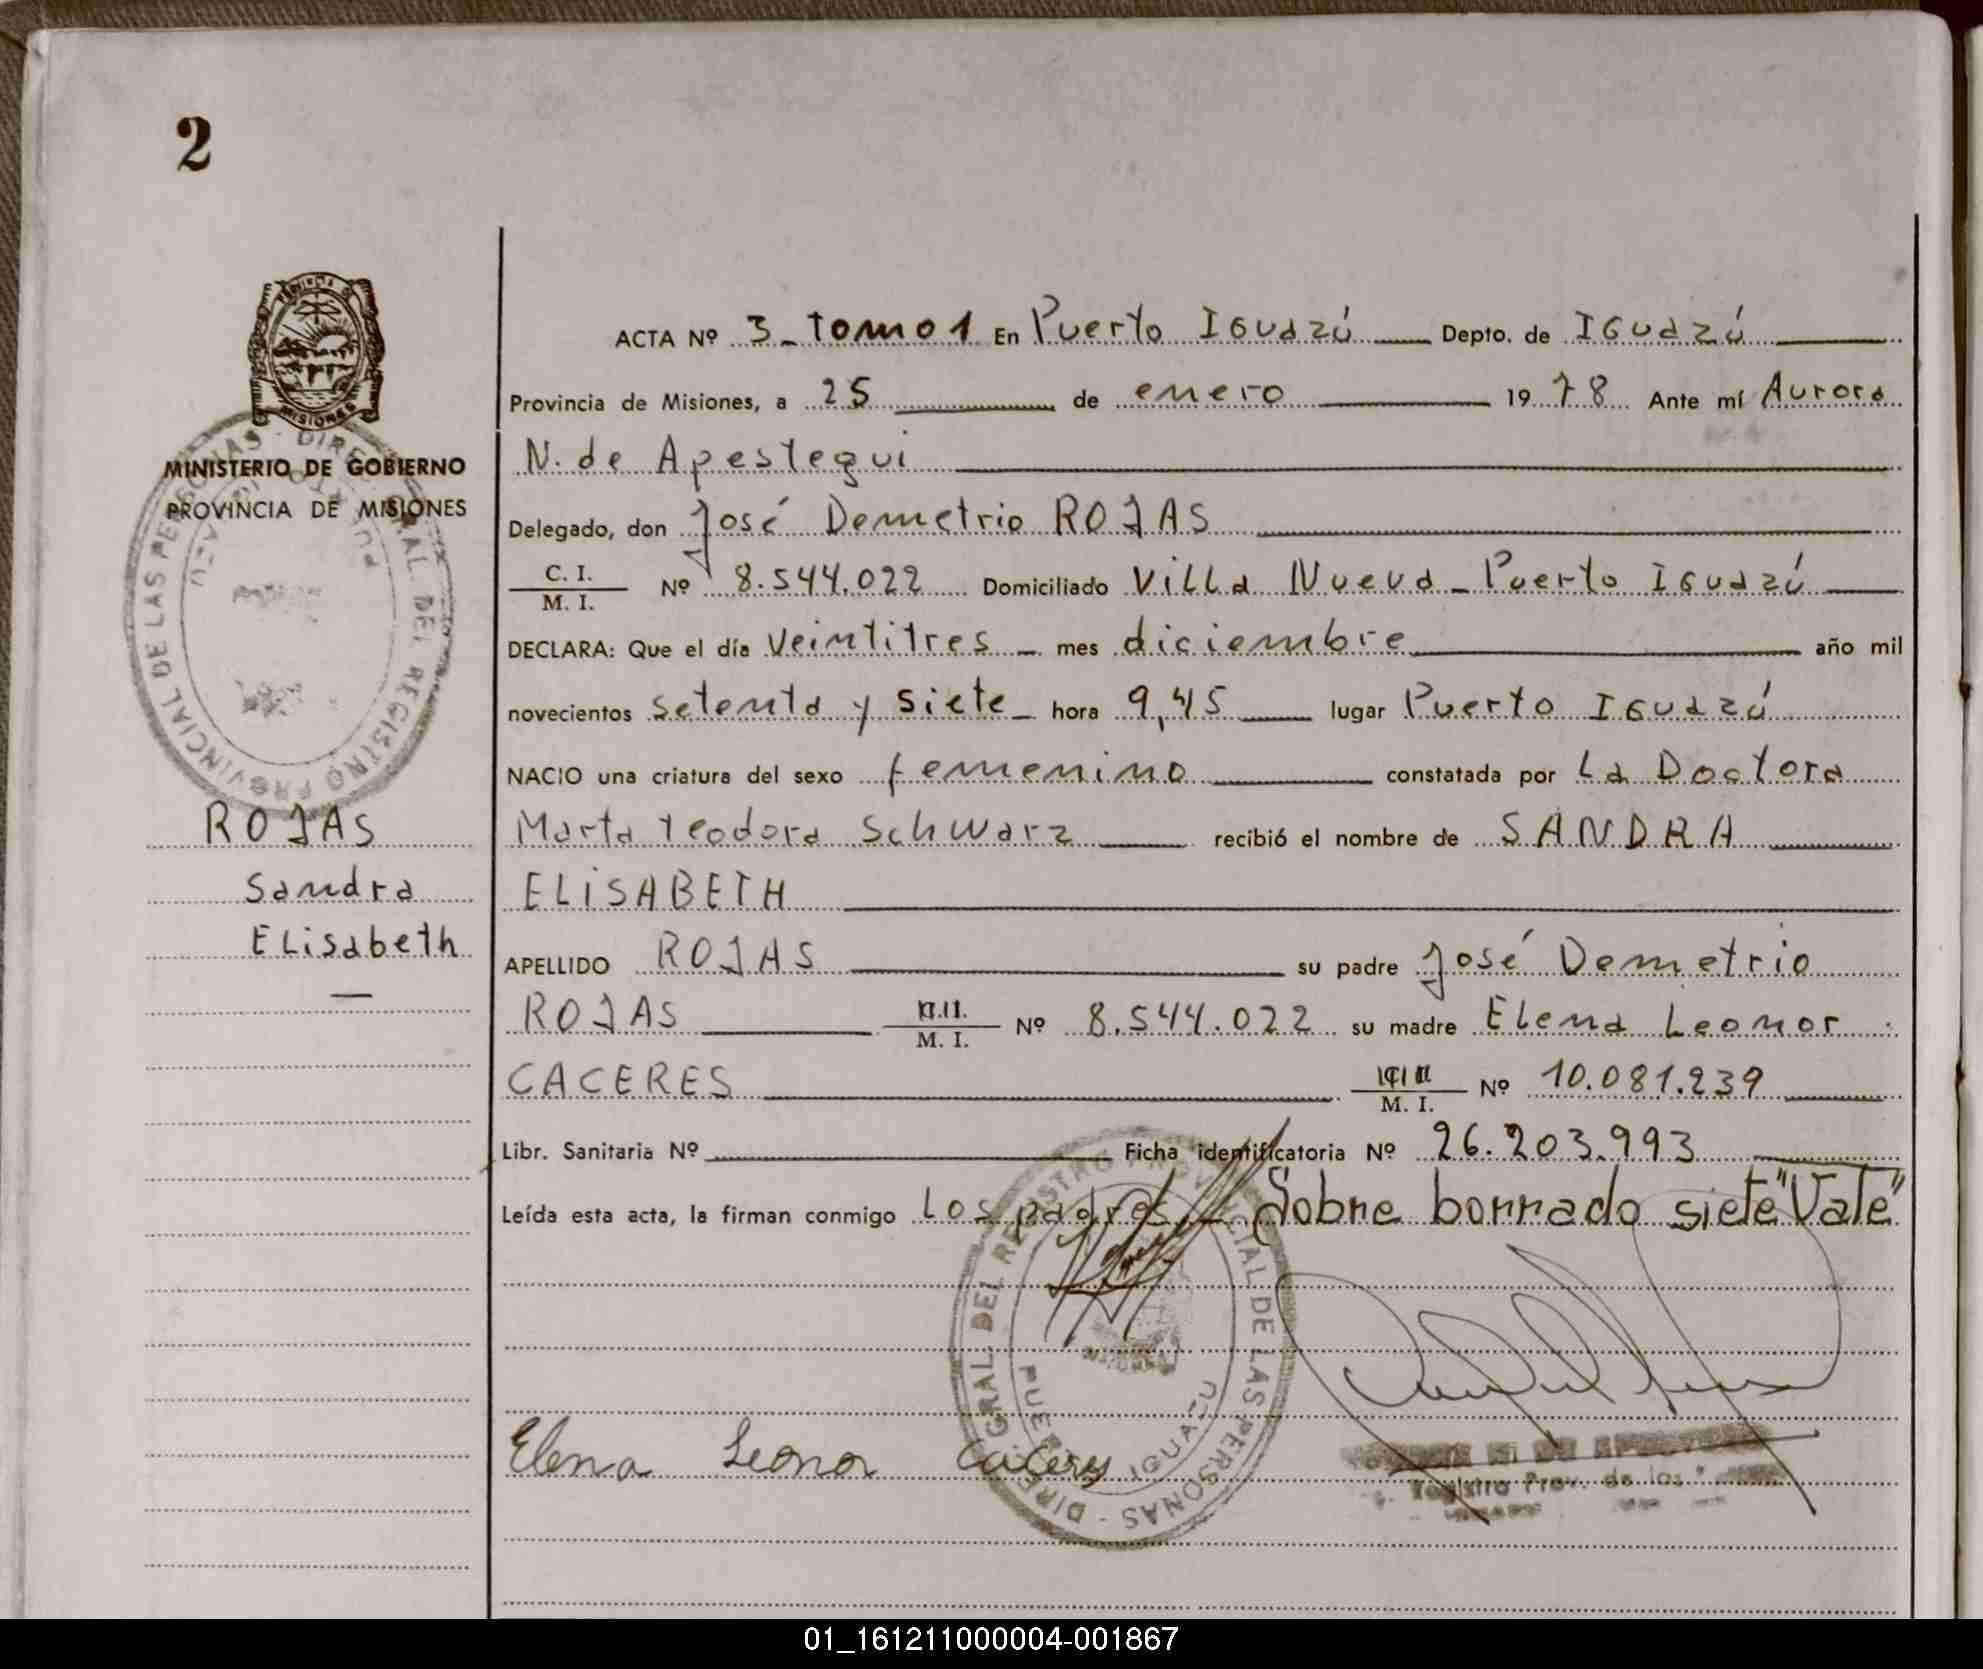 2
ACTA Nº 3 - Tomo 1 En Puerto Iguazú Depto. de Iguazú
Provincia de Misiones, a 25 de enero 1978 Ante mí Aurora
N. de Apestegui
MINISTERIO DE GOBIERNO
PROVINCIA DE MISIONES
Delegado, don José Demetrio ROJAS
C. I.
M. I. Nº 8.544.022 Domiciliado Villa Nueva - Puerto Iguazú
DECLARA: Que el día veintitres - mes diciembre año mil
novecientos setenta y siete - hora 9,45 lugar Puerto Iguazú
NACIO una criatura del sexo femenino constatada por La Doctora
ROJAS
Sandra
Elisabeth
Marta Teodora Schwarz recibió el nombre de SANDRA
ELISABETH
APELLIDO ROJAS su padre José Demetrio
ROJAS M. I. Nº 8.544.022 su madre Elena Leonor
CACERES M. I. Nº 10.081.239
Libr. Sanitaria Nº Ficha identificatoria Nº 26.203.993
Leída esta acta, la firman conmigo los padres - Sobre borrado siete "Vale"
Elena Leonor Caceres
DIREC. GRAL. DEL REGISTRO PROVINCIAL DE LAS PERSONAS
PUERTO IGUAZU
Registro Prov. de las
01_161211000004-001867